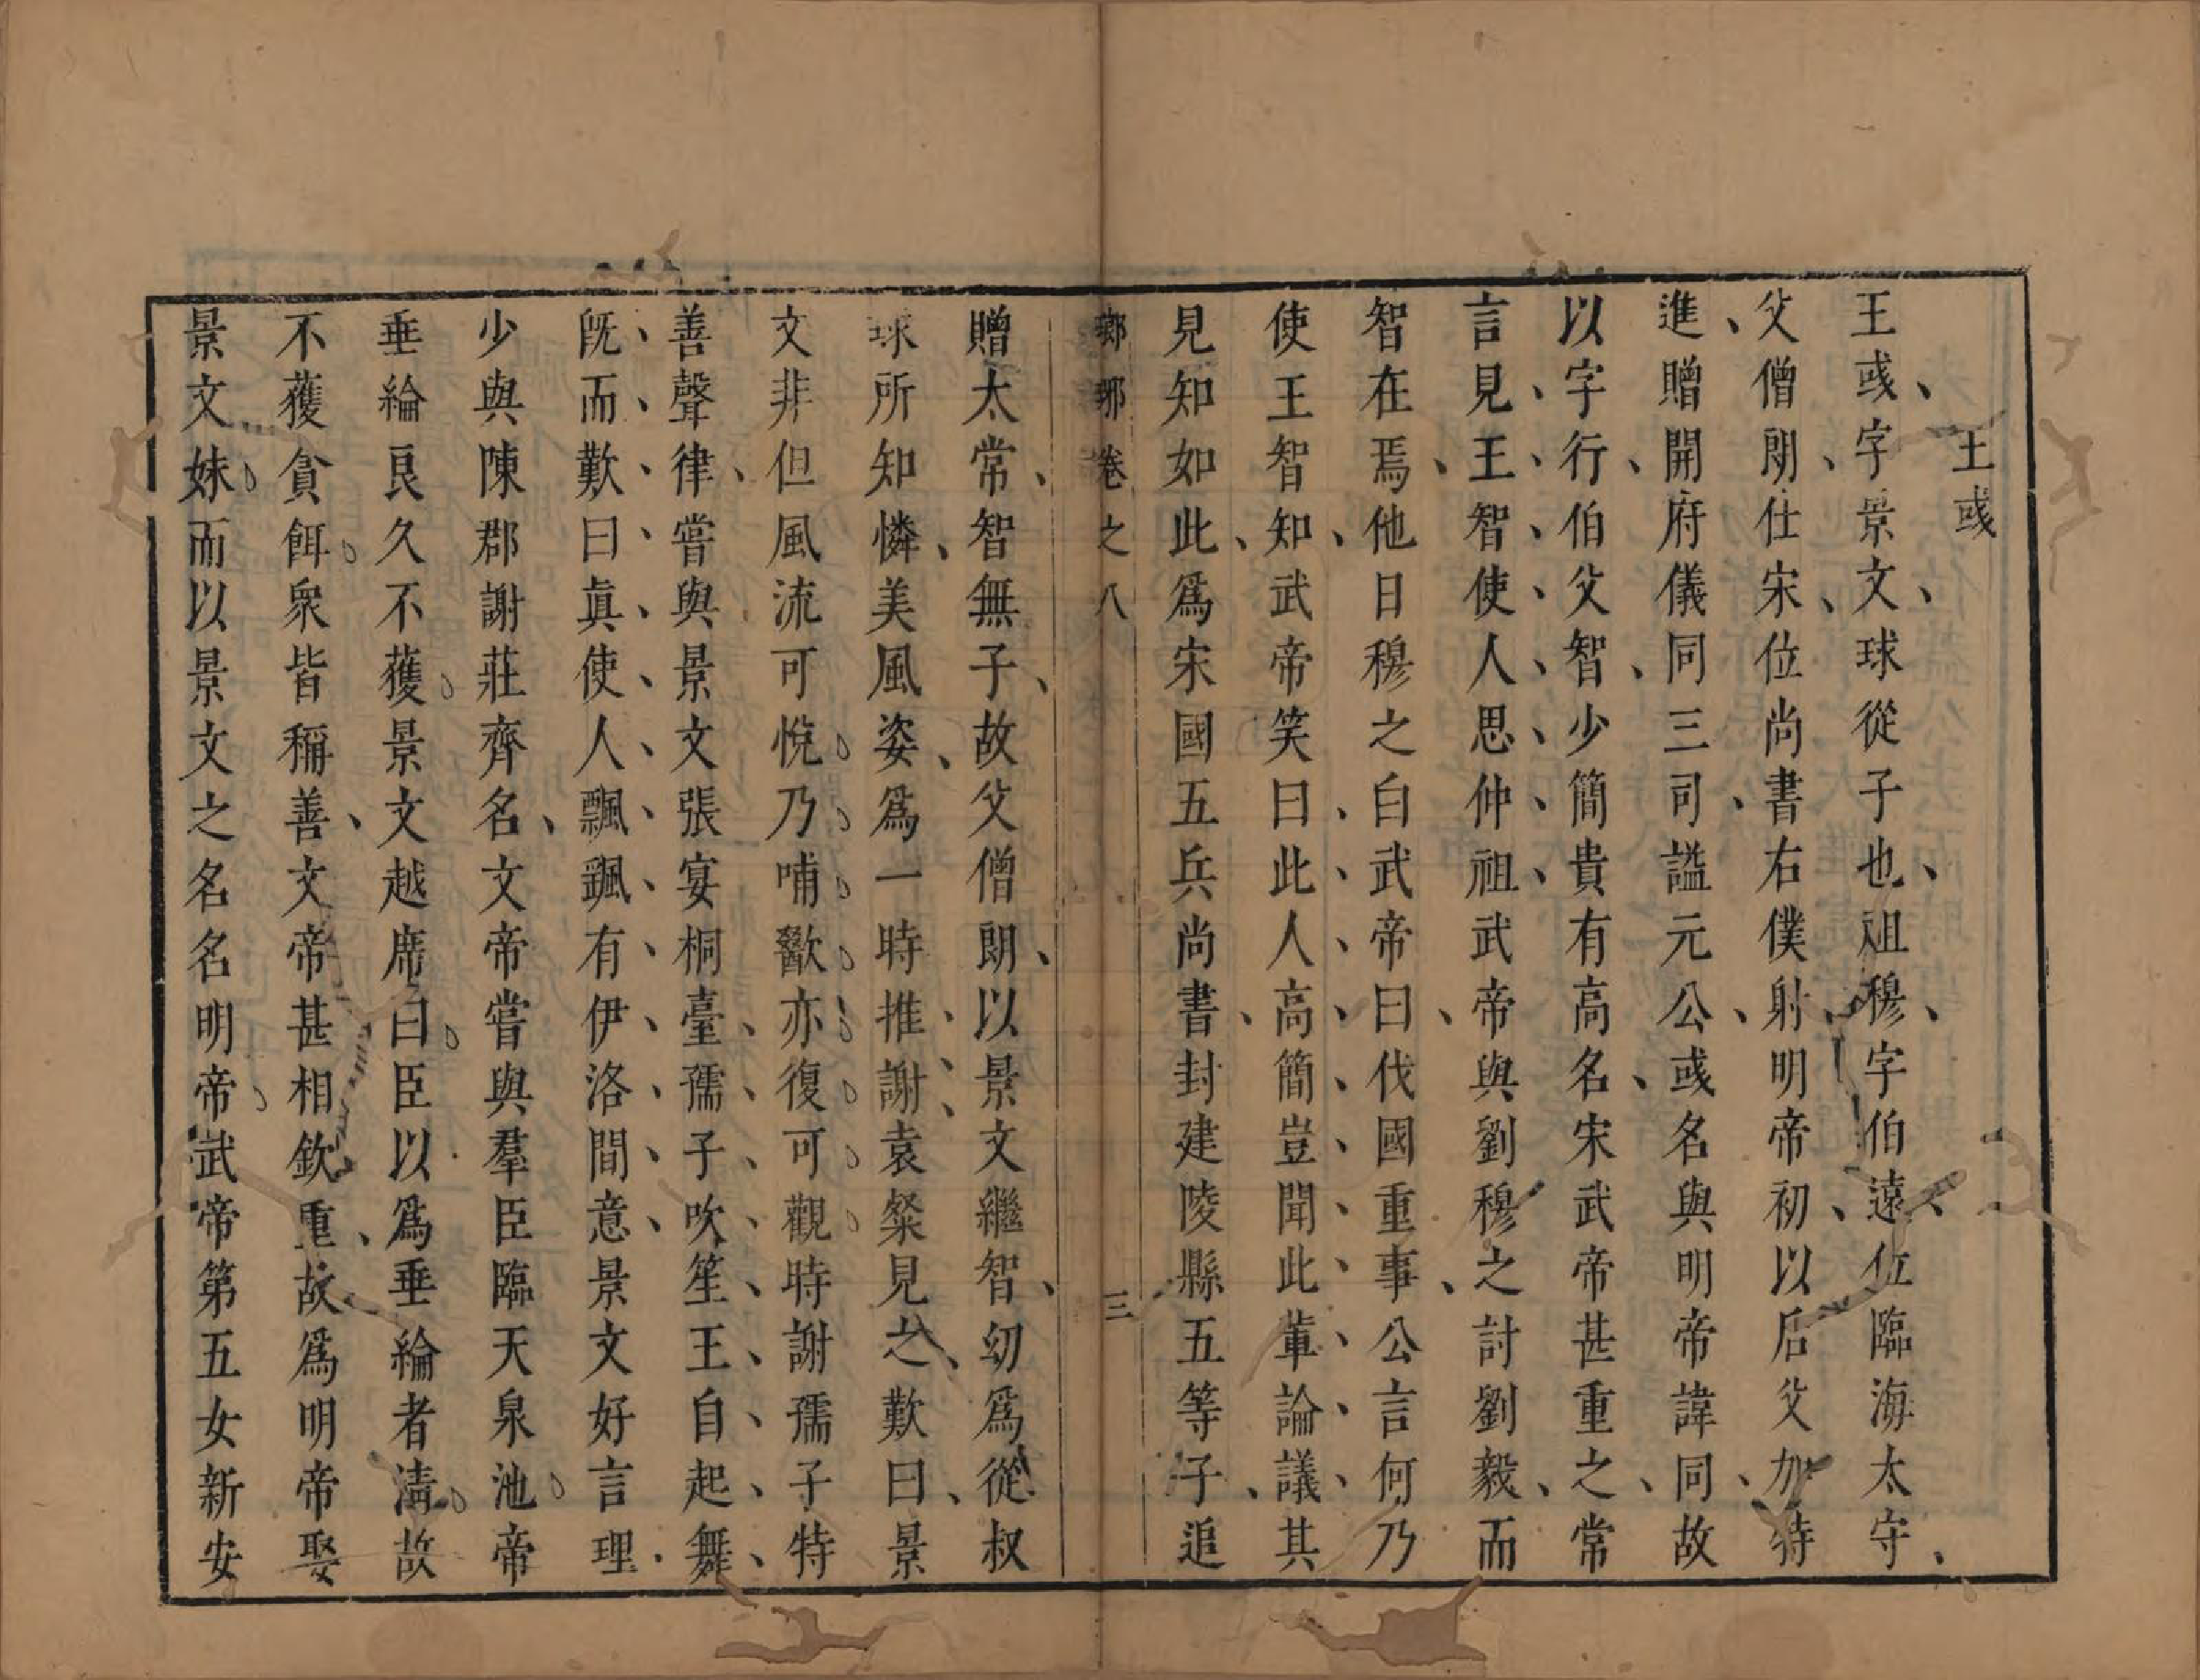 王彧
王彧字景文球從子也祖穆字伯遠位臨海太守
父僧朗仕宋位尚書右僕射明帝初以后父加特
進贈開府儀同三司謚元公彧名與明帝諱同故
以字行伯父智少簡貴有高名宋武帝甚重之常
言見王智使人思仲祖武帝與劉穆之討劉毅而
智在焉他日穆之白武帝曰伐國重事公言何乃
使王智知武帝笑曰此人高簡豈聞此輩論議其
見知如此爲宋國五兵尚書封建陵縣五等子追
瑯琊卷之八 三
贈太常智無子故父僧朗以景文繼智幼爲從叔
球所知憐美風姿爲一時推謝袁粲見之歎曰景
文非但風流可悅乃哺歠亦復可觀時謝孺子特
善聲律嘗與景文張宴桐臺孺子吹笙王自起舞
旣而歎曰眞使人飄颻有伊洛間意景文好言理
少與陳郡謝莊齊名文帝嘗與羣臣臨天泉池帝
垂綸良久不獲景文越席曰臣以爲垂綸者淸故
不獲貪餌衆皆稱善文帝甚相欽重故爲明帝娶
景文妹而以景文之名名明帝武帝第五女新安